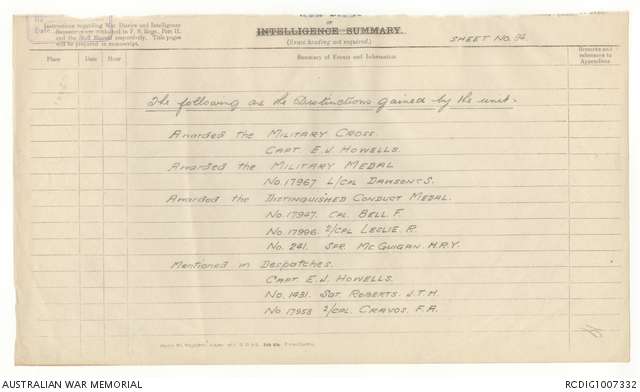 Instructions regarding War Diaries and Intelligence
Summaries are contained in F. S. Regs., Part II.
and the Staff Manual respectively. Title pages
will be prepared in manuscript.
INTELLIGENCE SUMMARY.
(Erase heading not required.)
SHEET No. 94.
Place
Date
Hour
Summary of Events and Information
Remarks and
references to
Appendices
The following are the Distinctions gained by the unit.
Awarded the MILITARY CROSS.
CAPT. E. J. HOWELLS.
Awarded the MILITARY MEDAL
No. 17967 L/CPL DAWSON S.
Awarded the DISTINGUISHED CONDUCT MEDAL.
No. 17947. CPL. BELL. F.
No. 17996. 2/CPL LESLIE. R.
No. 241. SPR. MCGUIGAN. H.R.Y.
Mentioned in Despatches.
CAPT. E. J. HOWELLS.
No. 1431. SGT. ROBERTS. J.T.H.
No. 17953 2/CPL. CRAVOS. F.A.
AUSTRALIAN WAR MEMORIAL
RCDIG1007332